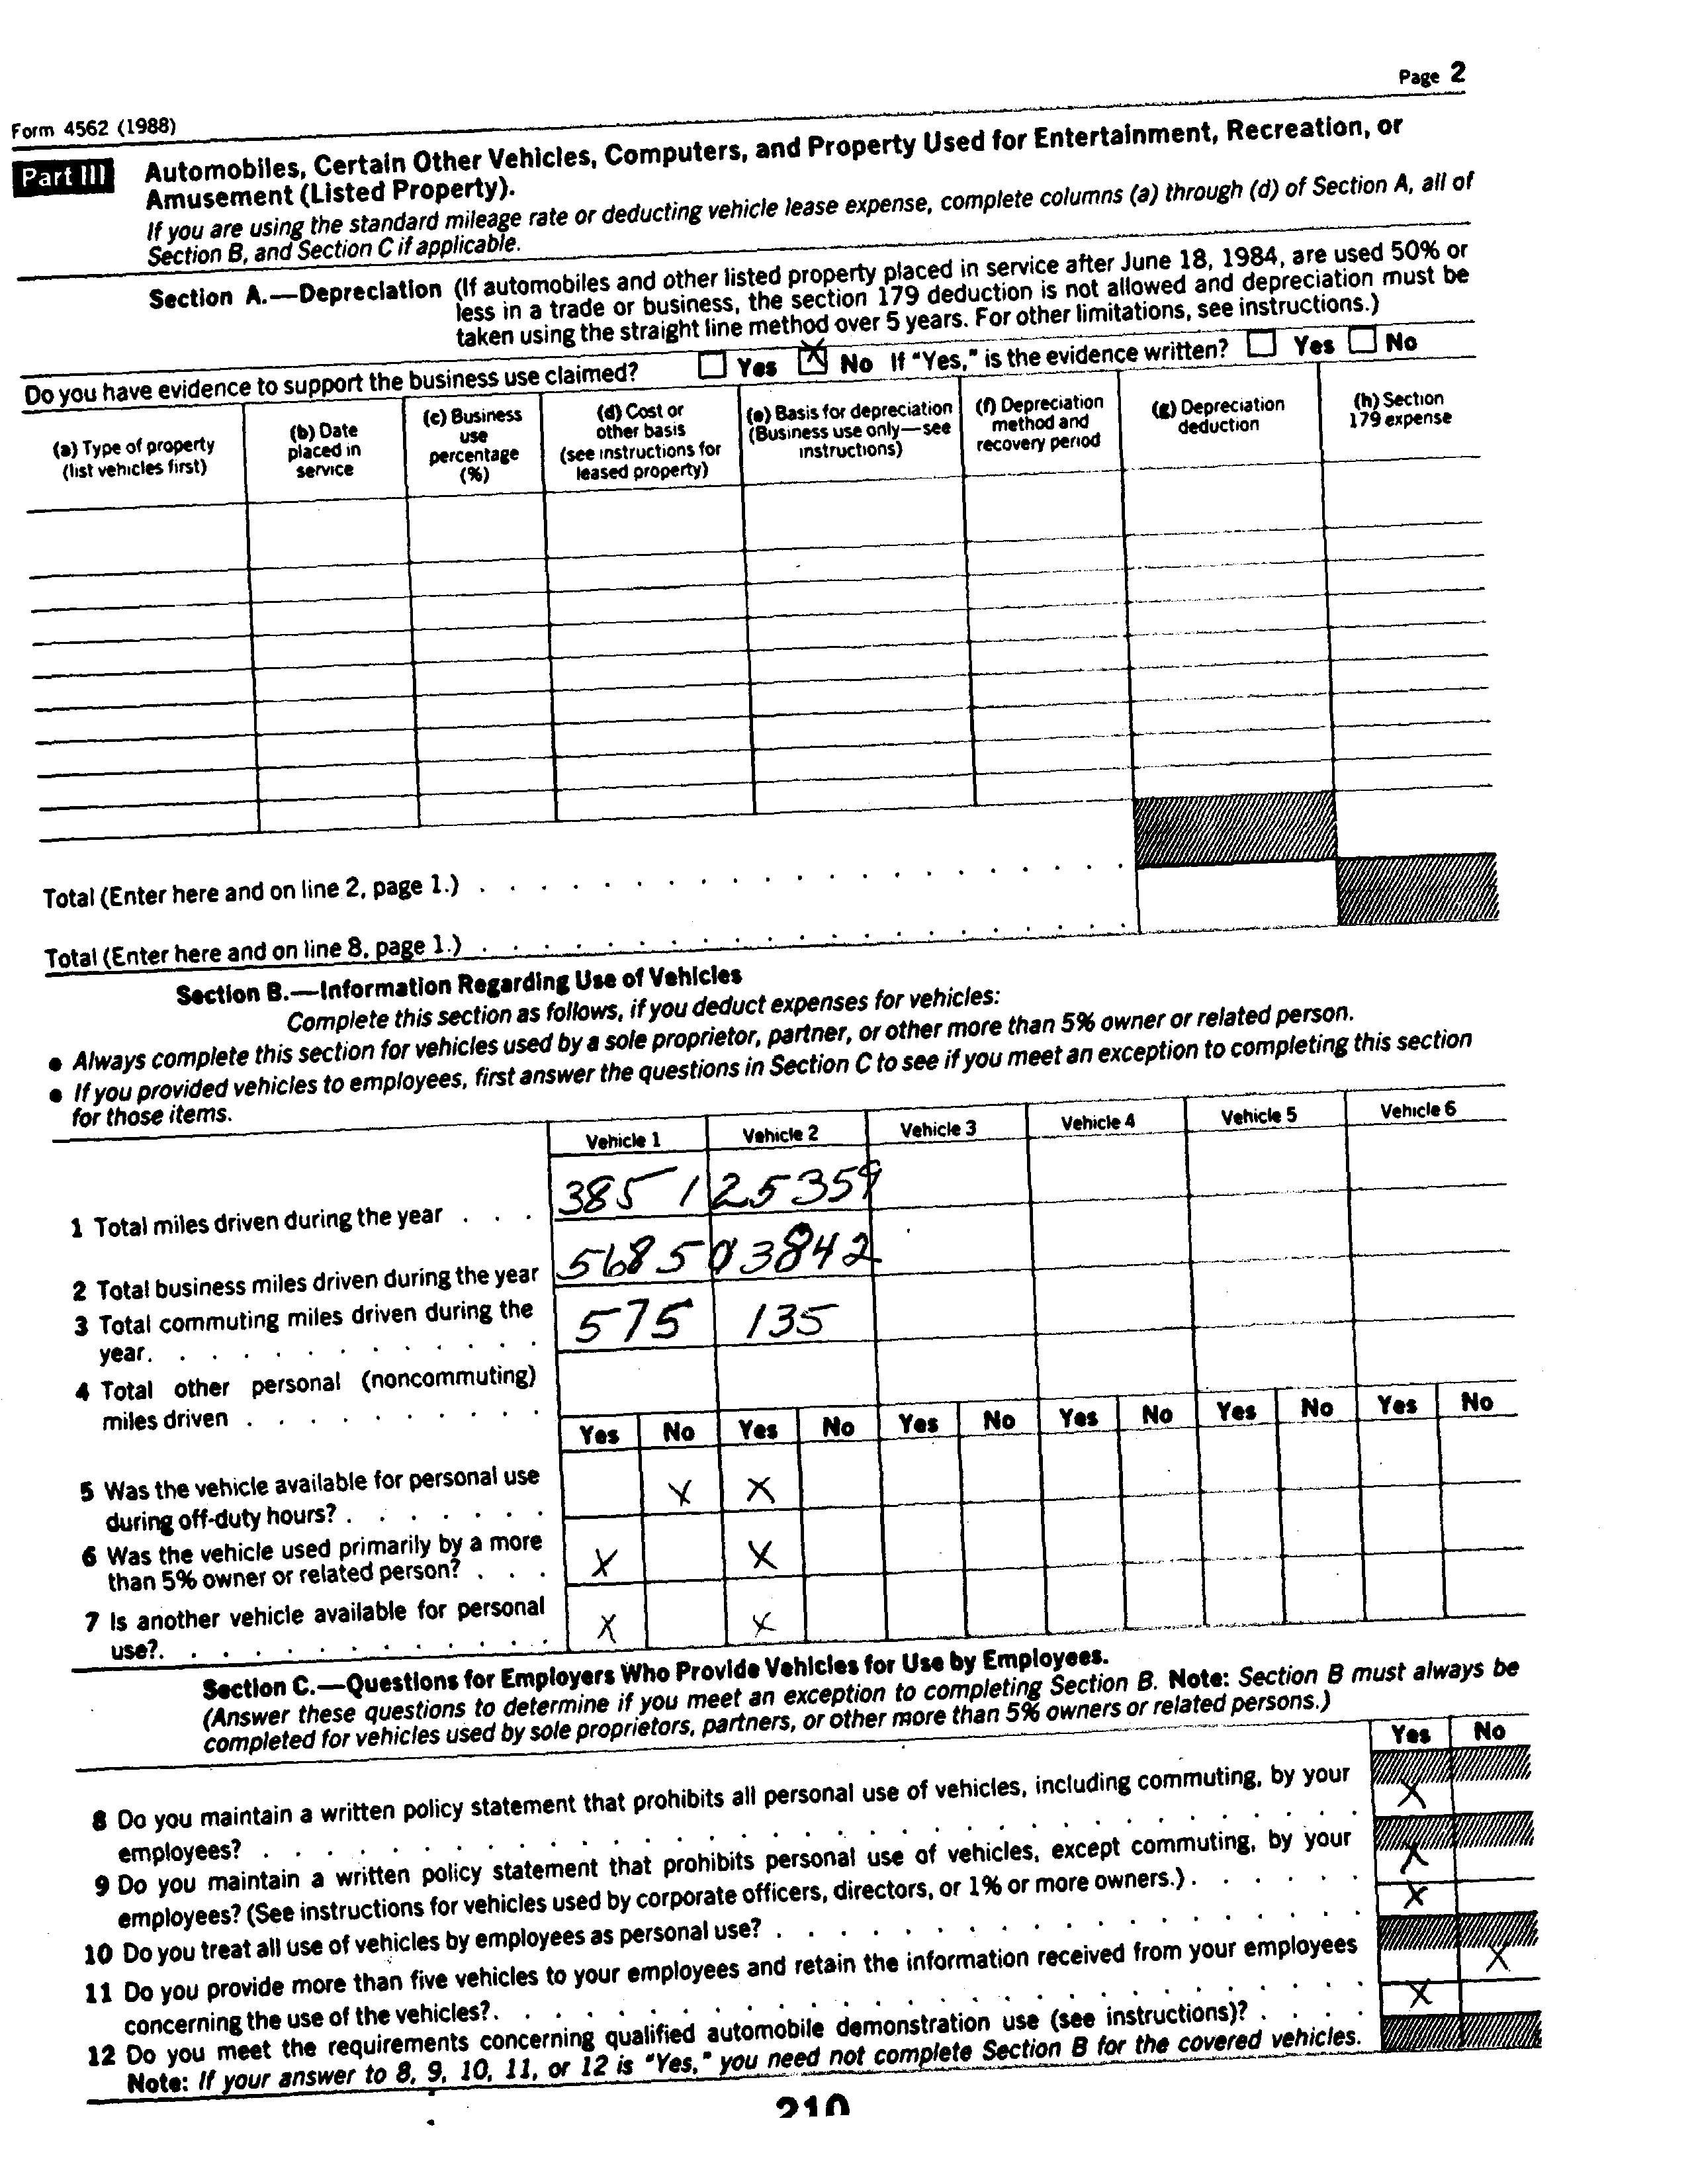 Page 2
Form 4562 (1988)
Part III Automobiles, Certain Other Vehicles, Computers, and Property Used for Entertainment, Recreation, or
Amusement (Listed Property).
If you are using the standard mileage rate or deducting vehicle lease expense, complete columns (a) through (d) of Section A, all of
Section B, and Section C if applicable.
Section A.—Depreciation (If automobiles and other listed property placed in service after June 18, 1984, are used 50% or
less in a trade or business, the section 179 deduction is not allowed and depreciation must be
taken using the straight line method over 5 years. For other limitations, see instructions.)
Do you have evidence to support the business use claimed? Yes X No If "Yes," is the evidence written? Yes No
(a) Type of property
(list vehicles first)
(b) Date
placed in
service
(c) Business
use
percentage
(%)
(d) Cost or
other basis
(see instructions for
leased property)
(e) Basis for depreciation
(Business use only—see
instructions)
(f) Depreciation
method and
recovery period
(g) Depreciation
deduction
(h) Section
179 expense
Total (Enter here and on line 2, page 1.)
Total (Enter here and on line 8, page 1.)
Section B.—Information Regarding Use of Vehicles
Complete this section as follows, if you deduct expenses for vehicles:
● Always complete this section for vehicles used by a sole proprietor, partner, or other more than 5% owner or related person.
● If you provided vehicles to employees, first answer the questions in Section C to see if you meet an exception to completing this section
for those items.
Vehicle 1 Vehicle 2 Vehicle 3 Vehicle 4 Vehicle 5 Vehicle 6
1 Total miles driven during the year . . . 385 1 25359
2 Total business miles driven during the year 56850 3842
3 Total commuting miles driven during the
year. . . . . . . . . . . . . 575 135
4 Total other personal (noncommuting)
miles driven . . . . . . . . . .
Yes No Yes No Yes No Yes No Yes No Yes No
5 Was the vehicle available for personal use
during off-duty hours? . . . . . . . X X
6 Was the vehicle used primarily by a more
than 5% owner or related person? . . . X X
7 Is another vehicle available for personal
use?. . . . . . . . . . . . . X X
Section C.—Questions for Employers Who Provide Vehicles for Use by Employees.
(Answer these questions to determine if you meet an exception to completing Section B. Note: Section B must always be
completed for vehicles used by sole proprietors, partners, or other more than 5% owners or related persons.)
Yes No
8 Do you maintain a written policy statement that prohibits all personal use of vehicles, including commuting, by your
employees? X
9 Do you maintain a written policy statement that prohibits personal use of vehicles, except commuting, by your
employees? (See instructions for vehicles used by corporate officers, directors, or 1% or more owners.) . X
10 Do you treat all use of vehicles by employees as personal use? X
11 Do you provide more than five vehicles to your employees and retain the information received from your employees
concerning the use of the vehicles?. X
12 Do you meet the requirements concerning qualified automobile demonstration use (see instructions)? . . . . X
Note: If your answer to 8, 9, 10, 11, or 12 is "Yes," you need not complete Section B for the covered vehicles.
210